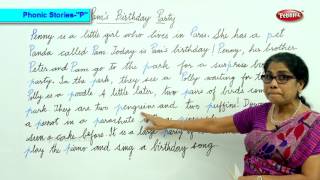 Phonic Stories-"P"
Pam's Birthday Party
Pebbles
Penny is a little girl who lives in Paris. She has a pet
Panda called Pam. Today is Pam's birthday! Penny, her brother
Peter and Pam go to the park for a surprise
party. In the park, they see a Polly waiting for
Polly is a poodle. A little later, two pairs of birds come
park. They are two penguins and two puffins!
a parrot in a parachute
seen a cake before. It is a large party
play the piano and sing a birthday song.